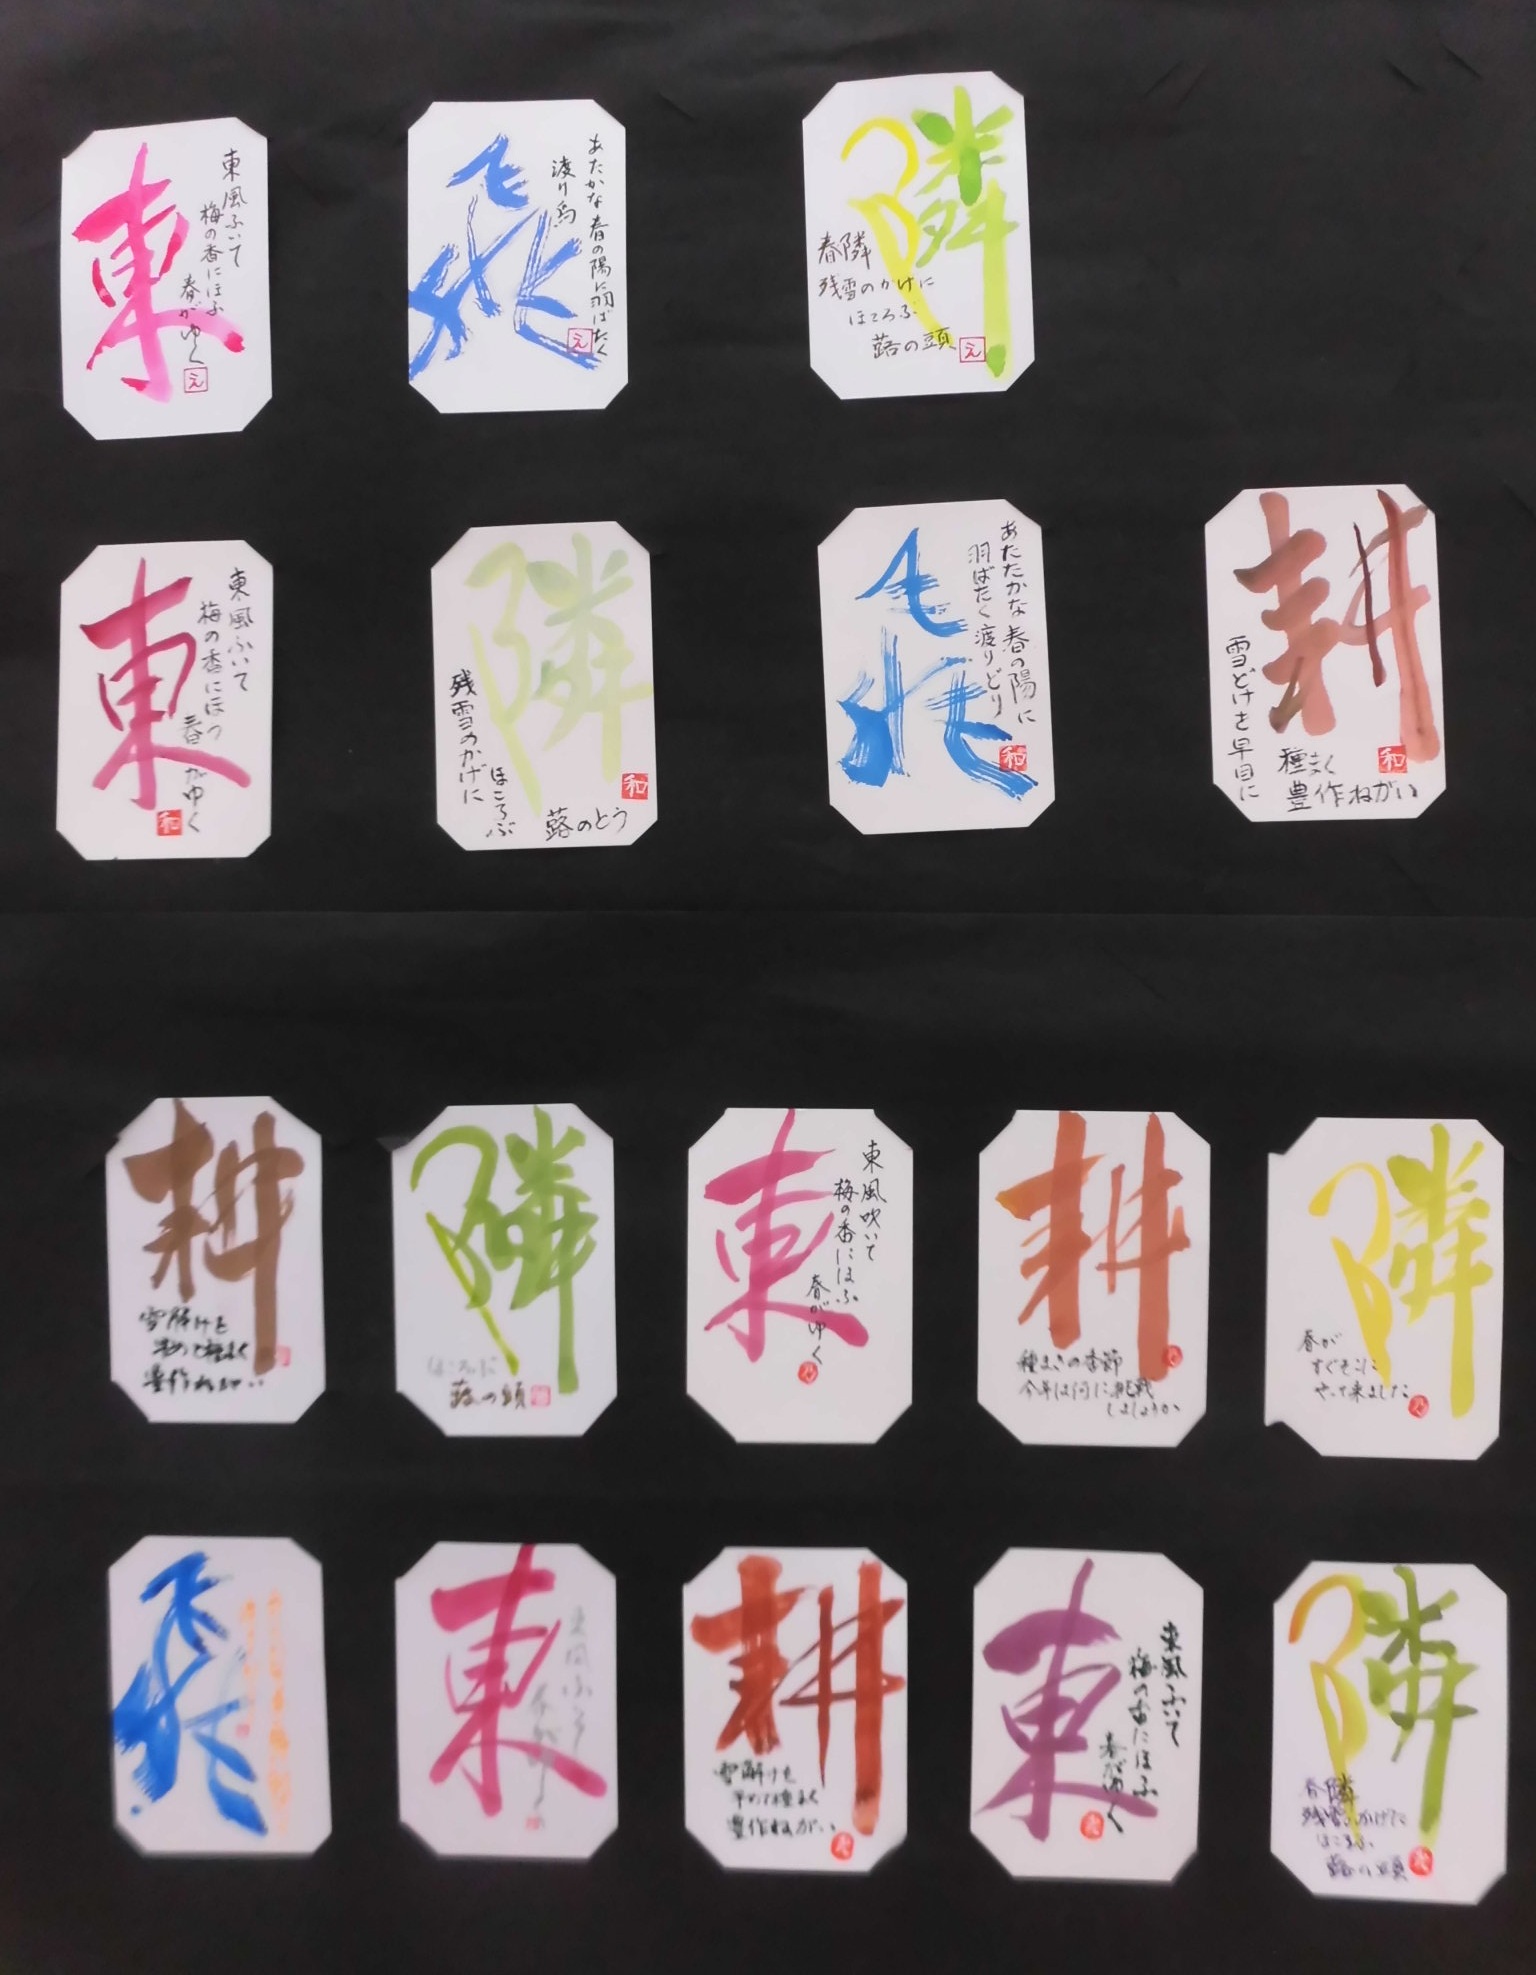 東
東風ふいて
梅の香にほふ
春がゆく
え
飛
あたかな春の陽に羽ばたく
渡り鳥
え
隣
春隣
残雪のかげに
ほころぶ
蕗の頭
え
東
東風ふいて
梅の香にほつ
春がゆく
和
隣
残雪のかげに
ほころぶ
蕗のとう
和
飛
あたたかな春の陽に
羽ばたく渡りどり
和
耕
雪どけを早目に
種まく
豊作ねがい
和
耕
雪解けを
種まく
豊作ねがい
隣
ほころぶ
蕗の頭
東
東風吹いて
梅の香にほふ
春がゆく
乃
耕
種まきの季節
今年は何に挑戦
しましょうか
乃
隣
春が
すぐそこに
やって来ました
乃
飛
東
東風ふいて
耕
雪解けを
早めて種まく
豊作ねがい
東
東風ふいて
梅の香にほふ
春がゆく
隣
春隣
残雪のかげに
ほころぶ
蕗の頭